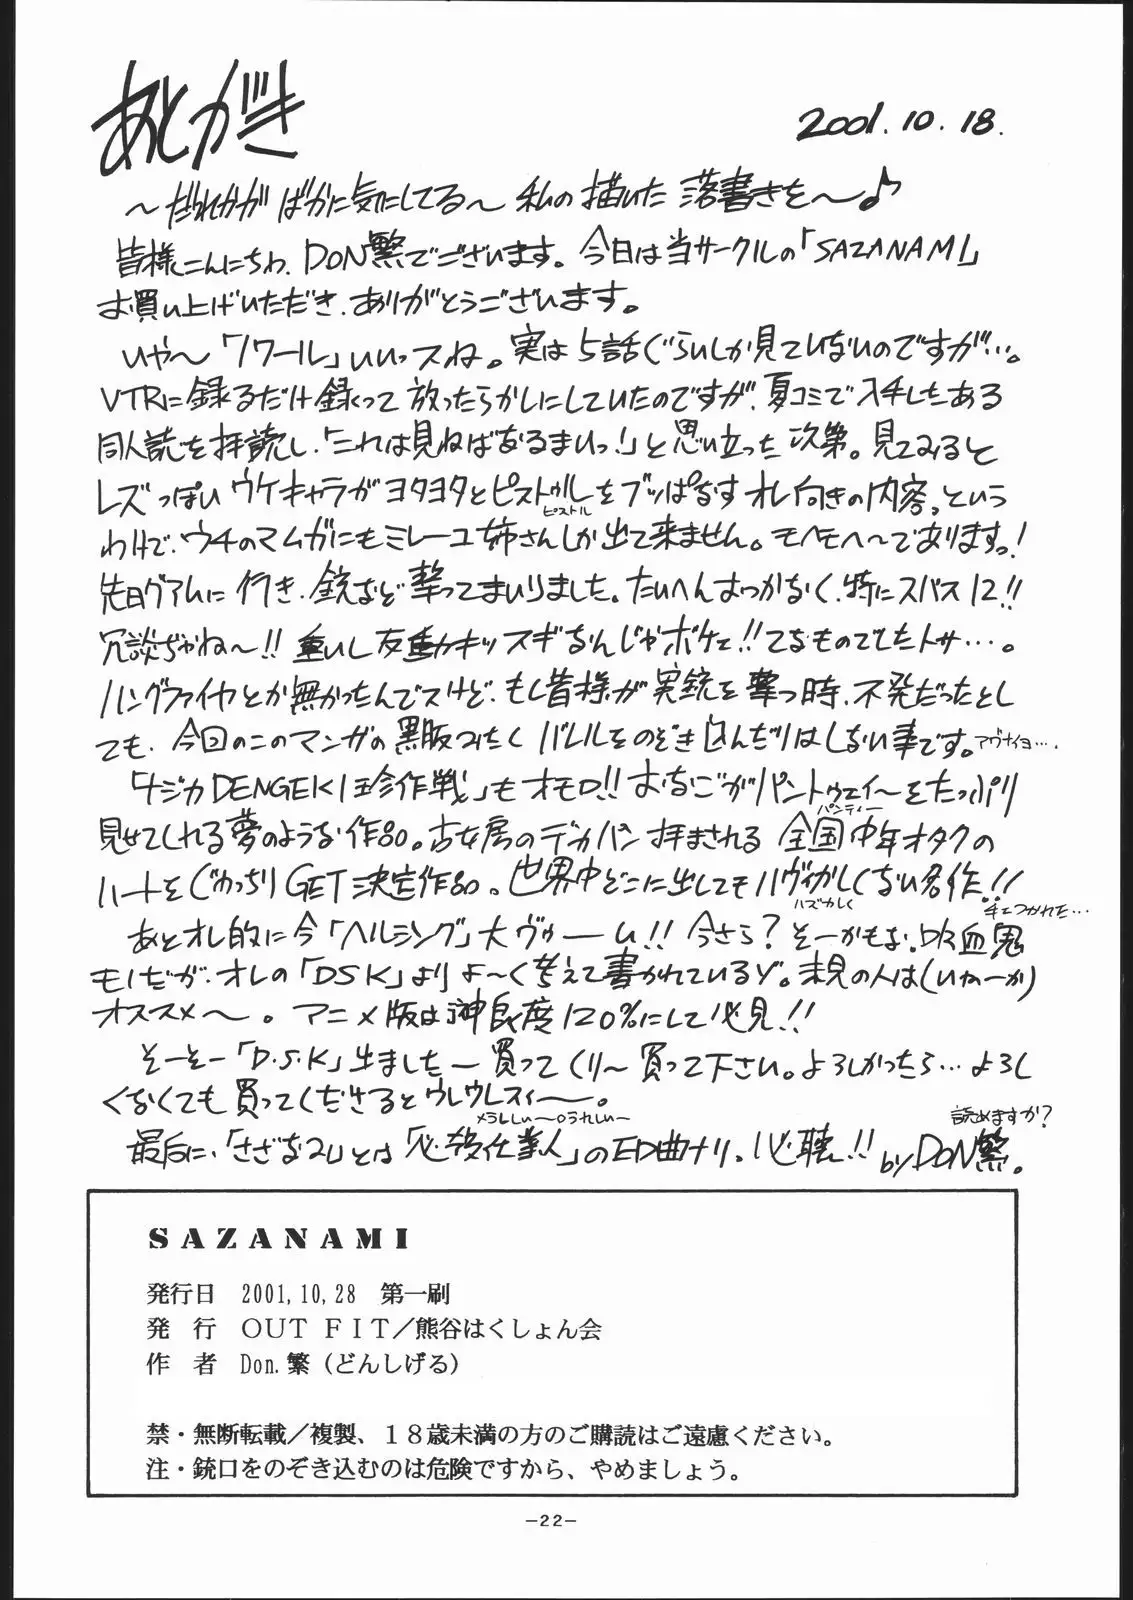 あとがき
2001.10.18.
～だれかが ばかに気にしてる～ 私の描いた 落書きを～♪
皆様こんにちわ、DON繁でございます。今日は当サークルの「SAZANAMI」
お買い上げいただき、ありがとうございます。
いや～「ノワール」いいっスね。実は5話ぐらいしか見ていないのですが…。
VTRに録るだけ録って放ったらかしにしていたのですが、夏コミで入手したある
同人誌を拝読し、「これは見ねばあるまいっ!」と思い立った次第。見てみると
レズっぽいウケキャラがヨタヨタとピストルをブッぱなすオレ向きの内容。という
ピストル
わけで、ウチのマムガにもミレーユ姉さんしか出て来ません。モヘモヘ～でありますっ!
先日グァムに行き、銃など撃ってまいりました。たいへんおっかなく、特にスパス12!!
冗談ぢゃね～!! 重いし反動キッスギなんじゃボケェ!! てなものでしたトサ…。
ハングファイヤとか無かったんでスけど、もし皆様が実銃を撃つ時、不発だったとし
ても、今回のこのマンガの黒版みたくバレルをのぞき込んだりはしない事です。アヴナイヨ…。
「ナジカDENGEKI珍作戦」もオモロ!! おなごがパントウェイ～をたっぷり
パンティー
見せてくれる夢のような作品。古女房のデカパン拝まされる全国中年オタクの
ハートをじわっちりGET決定作品。世界中どこに出してもハヴィかしくない名作!!
ハズカしく
手につかれた…
あとオレ的に今「ヘルシング」大ヴゥーム!! 今さら? そーかもな。吹血鬼
モノだが、オレの「DSK」よりよ～く考えて書かれているゾ。未見の人は(いねーか)
オススメ～。アニメ版は神良度120%にして必見!!
そーそー「D.S.K」出ました―買ってくり～買って下さい。よろしかったら…よろし
くなくても買ってくださるとウレウレスィ～。
メうれしい～○うれしい～
読めますか?
最后に、「さざなみ」とは「必殺仕業人」のED曲ナリ。必聴!! by DON繁。
SAZANAMI
発行日 2001,10,28 第一刷
発 行 OUT FIT／熊谷はくしょん会
作 者 Don.繁（どんしげる）
禁・無断転載／複製、１８歳未満の方のご購読はご遠慮ください。
注・銃口をのぞき込むのは危険ですから、やめましょう。
－22－